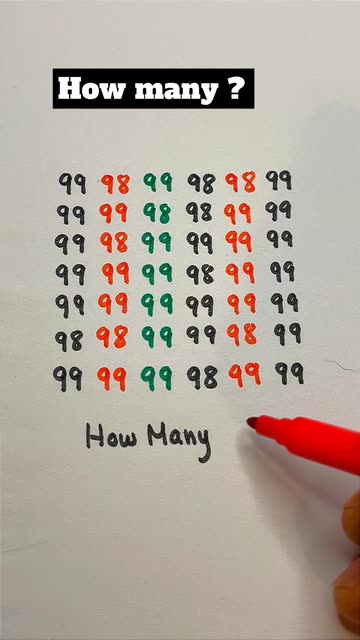 How many ?
99 98 99 98 98 99
99 99 98 98 99 99
99 98 99 99 99 99
99 99 99 98 99 99
99 99 99 99 99 99
98 98 99 99 98 99
99 99 99 98 99 99
How Many